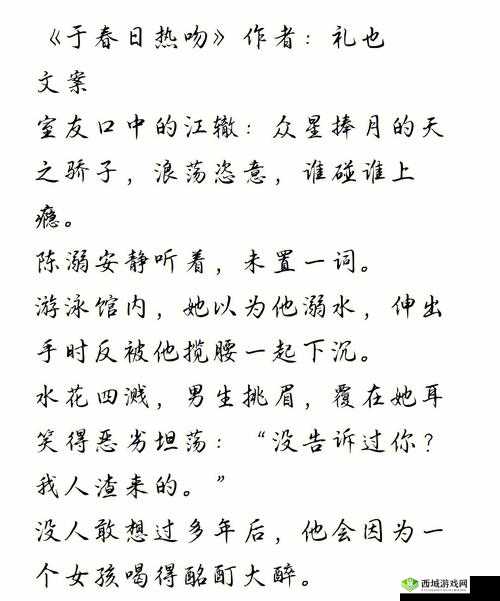 《于春日热吻》作者：礼也
文案
室友口中的江辙：众星捧月的天
之骄子，浪荡恣意，谁碰谁上
瘾。
陈溺安静听着，未置一词。
游泳馆内，她以为他溺水，伸出
手时反被他揽腰一起下沉。
水花四溅，男生挑眉，覆在她耳
笑得恶劣坦荡：“没告诉过你？
我人渣来的。”
没人敢想过多年后，他会因为一
个女孩喝得酩酊大醉。
西城游戏网